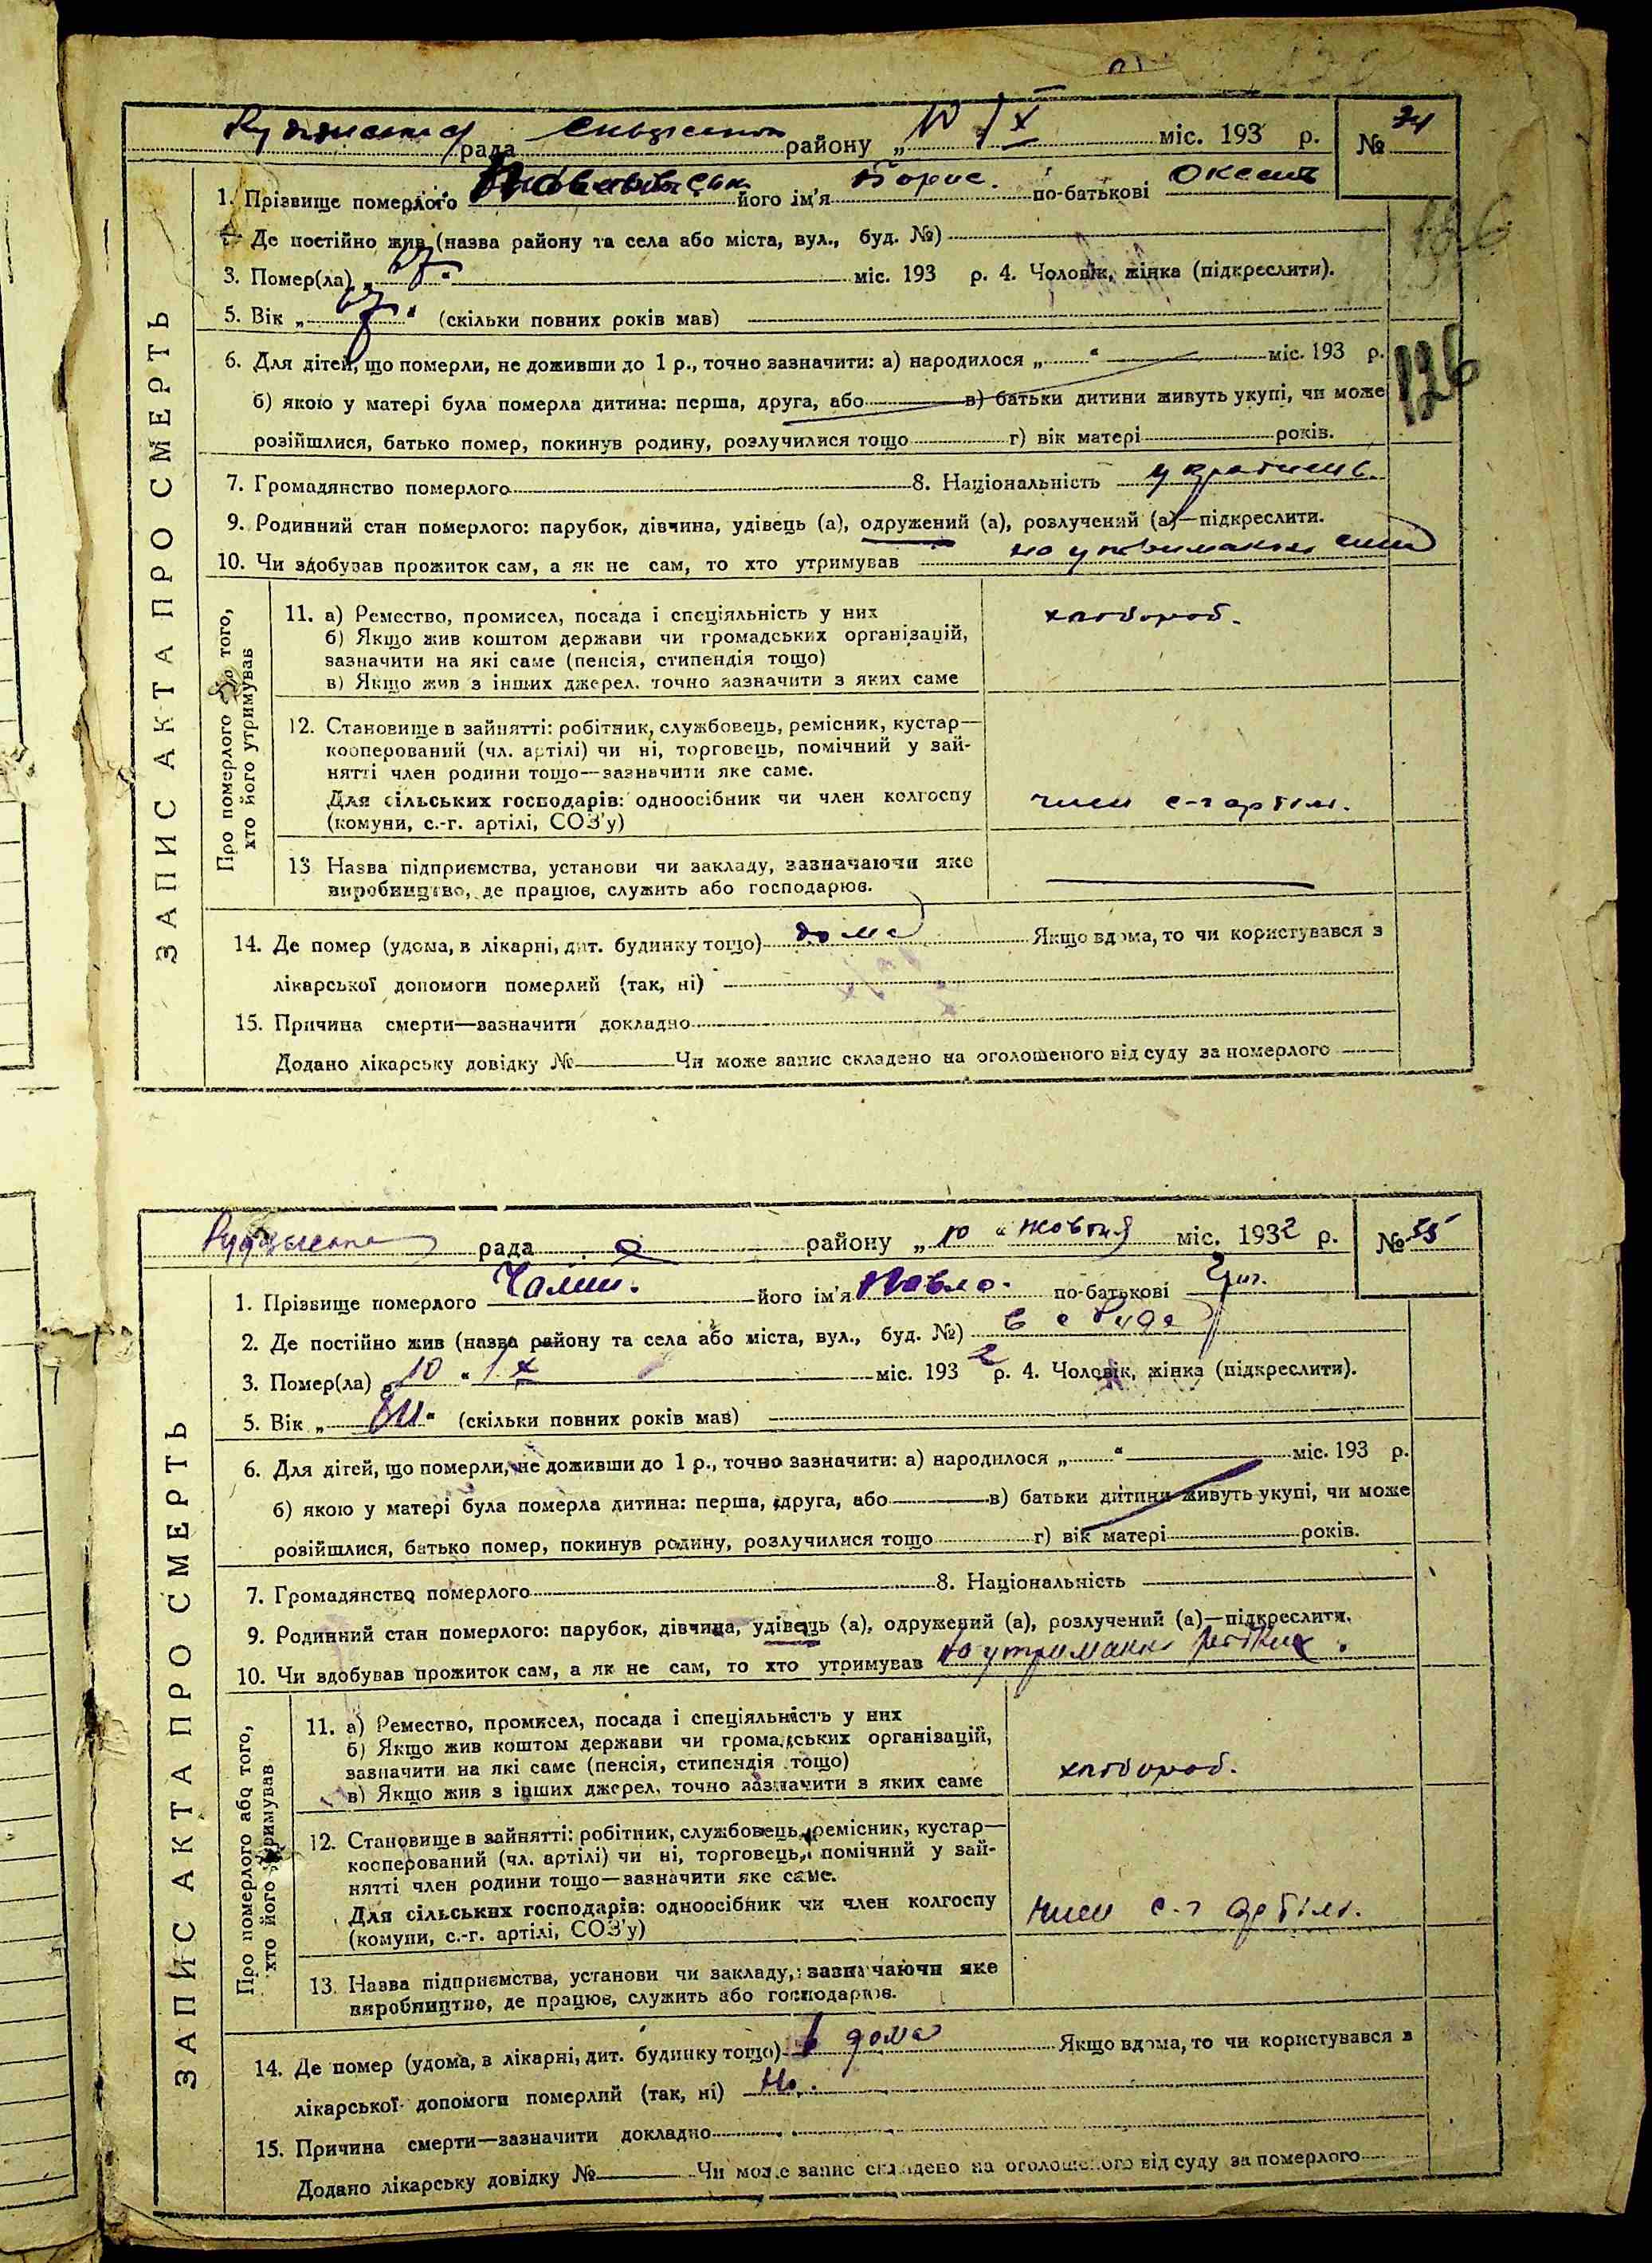 рада району „10 / X міс. 193 р. № 34
1. Прізвище померлого його ім'я Борис. по-батькові
2. Де постійно жив (назва району та села або міста, вул., буд. №)
3. Помер(ла) „ “ міс. 193 р. 4. Чоловік, жінка (підкреслити).
5. Вік „ 67 “ (скільки повних років мав)
6. Для дітей, що померли, не доживши до 1 р., точно зазначити: а) народилося „ “ міс. 193 р.
126
126
б) якою у матері була померла дитина: перша, друга, або в) батьки дитини живуть укупі, чи може
розійшлися, батько помер, покинув родину, розлучилися тощо г) вік матері років.
7. Громадянство померлого 8. Національність українец.
9. Родинний стан померлого: парубок, дівчина, удівець (а), одружений (а), розлучений (а)—підкреслити.
10. Чи здобував прожиток сам, а як не сам, то хто утримував на утриманні сина
ЗАПИС АКТА ПРО СМЕРТЬ
Про померлого або того,
хто його утримував
11. а) Ремество, промисел, посада і спеціяльність у них хлібороб.
б) Якщо жив коштом держави чи громадських організацій,
зазначити на які саме (пенсія, стипендія тощо)
в) Якщо жив з інших джерел, точно зазначити з яких саме
12. Становище в зайнятті: робітник, службовець, ремісник, кустар—
кооперований (чл. артілі) чи ні, торговець, помічний у зай-
нятті член родини тощо—зазначити яке саме.
Для сільських господарів: одноосібник чи член колгоспу член с-г артілі.
(комуни, с.-г. артілі, СОЗ'у)
13 Назва підприємства, установи чи закладу, зазначаючи яке
виробництво, де працює, служить або господарює.
14. Де помер (удома, в лікарні, дит. будинку тощо) дома Якщо вдома, то чи користувався з
лікарської допомоги померлий (так, ні)
15. Причина смерти—зазначити докладно
Додано лікарську довідку № Чи може запис складено на оголошеного від суду за померлого
рада району „ 10 “ жовтня міс. 1932 р. № 35
1. Прізвище померлого Чалий. його ім'я Павло. по-батькові
2. Де постійно жив (назва району та села або міста, вул., буд. №) в с Руда
3. Помер(ла) „ 10 “ / X міс. 1932 р. 4. Чоловік, жінка (підкреслити).
5. Вік „ “ (скільки повних років мав)
6. Для дітей, що померли, не доживши до 1 р., точно зазначити: а) народилося „ “ міс. 193 р.
б) якою у матері була померла дитина: перша, друга, або в) батьки дитини живуть укупі, чи може
розійшлися, батько помер, покинув родину, розлучилися тощо г) вік матері років.
7. Громадянство померлого 8. Національність
9. Родинний стан померлого: парубок, дівчина, удівець (а), одружений (а), розлучений (а)—підкреслити.
10. Чи здобував прожиток сам, а як не сам, то хто утримував на утриманні
ЗАПИС АКТА ПРО СМЕРТЬ
Про померлого або того,
хто його утримував
11. а) Ремество, промисел, посада і спеціяльність у них
б) Якщо жив коштом держави чи громадських організацій,
зазначити на які саме (пенсія, стипендія тощо) хлібороб.
в) Якщо жив з інших джерел, точно зазначити з яких саме
12. Становище в зайнятті: робітник, службовець, ремісник, кустар—
кооперований (чл. артілі) чи ні, торговець, помічний у зай-
нятті член родини тощо—зазначити яке саме.
Для сільських господарів: одноосібник чи член колгоспу член с-г артілі.
(комуни, с.-г. артілі, СОЗ'у)
13. Назва підприємства, установи чи закладу, зазначаючи яке
виробництво, де працює, служить або господарює.
14. Де помер (удома, в лікарні, дит. будинку тощо) в дома Якщо вдома, то чи користувався з
лікарської допомоги померлий (так, ні) Ні.
15. Причина смерти—зазначити докладно
Додано лікарську довідку № Чи може запис складено на оголошеного від суду за померлого